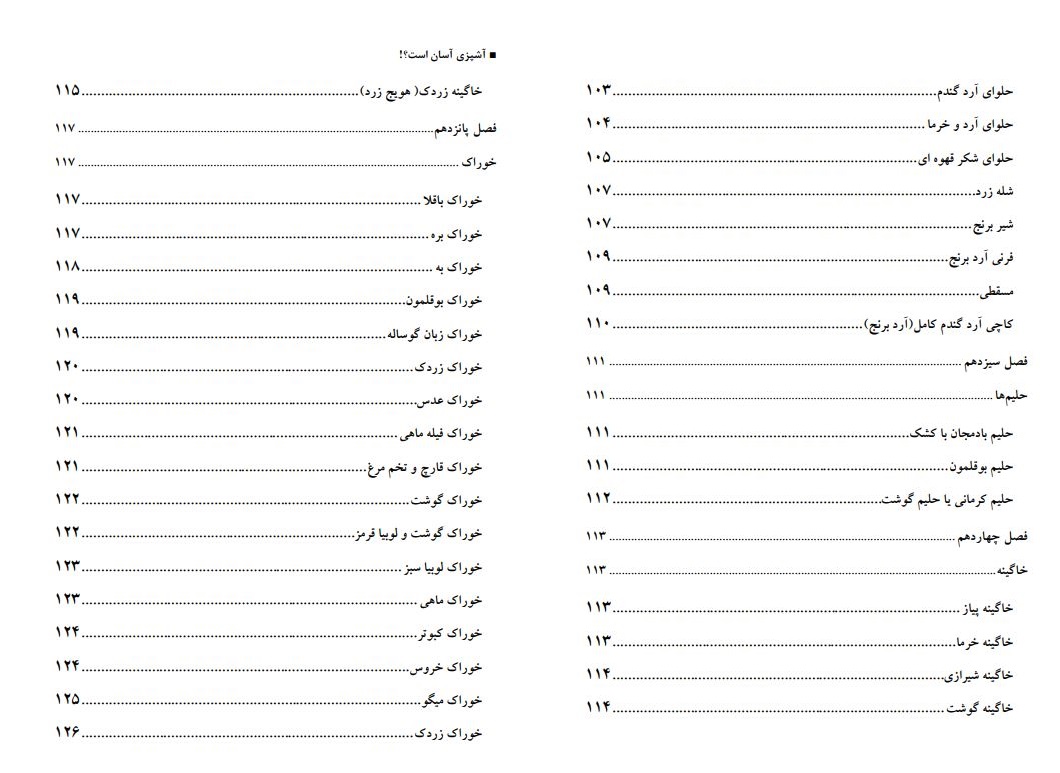 حلوای آرد گندم........................................۱۰۳
حلوای آرد و خرما ........................................۱۰۴
حلوای شکر قهوه ای........................................۱۰۵
شله زرد........................................۱۰۷
شیر برنج........................................۱۰۷
فرنی آرد برنج........................................۱۰۹
مسقطی........................................۱۰۹
کاچی آرد گندم کامل(آرد برنج)........................................۱۱۰
فصل سیزدهم ........................................ ۱۱۱
حلیم‌ها ........................................ ۱۱۱
حلیم بادمجان با کشک........................................۱۱۱
حلیم بوقلمون........................................۱۱۱
حلیم کرمانی یا حلیم گوشت........................................۱۱۲
فصل چهاردهم ........................................ ۱۱۳
خاگینه........................................ ۱۱۳
خاگینه پیاز ........................................۱۱۳
خاگینه خرما........................................۱۱۳
خاگینه شیرازی........................................۱۱۴
خاگینه گوشت ........................................۱۱۴
■ آشپزی آسان است؟!
خاگینه زردک( هویج زرد)........................................۱۱۵
فصل پانزدهم........................................ ۱۱۷
خوراک ........................................ ۱۱۷
خوراک باقلا ........................................۱۱۷
خوراک بره ........................................۱۱۷
خوراک به ........................................۱۱۸
خوراک بوقلمون........................................۱۱۹
خوراک زبان گوساله ........................................۱۱۹
خوراک زردک........................................۱۲۰
خوراک عدس........................................۱۲۰
خوراک فیله ماهی ........................................۱۲۱
خوراک قارچ و تخم مرغ........................................۱۲۱
خوراک گوشت........................................۱۲۲
خوراک گوشت و لوبیا قرمز........................................۱۲۲
خوراک لوبیا سبز ........................................۱۲۳
خوراک ماهی ........................................۱۲۳
خوراک کبوتر........................................۱۲۴
خوراک خروس........................................۱۲۴
خوراک میگو........................................۱۲۵
خوراک زردک........................................۱۲۶